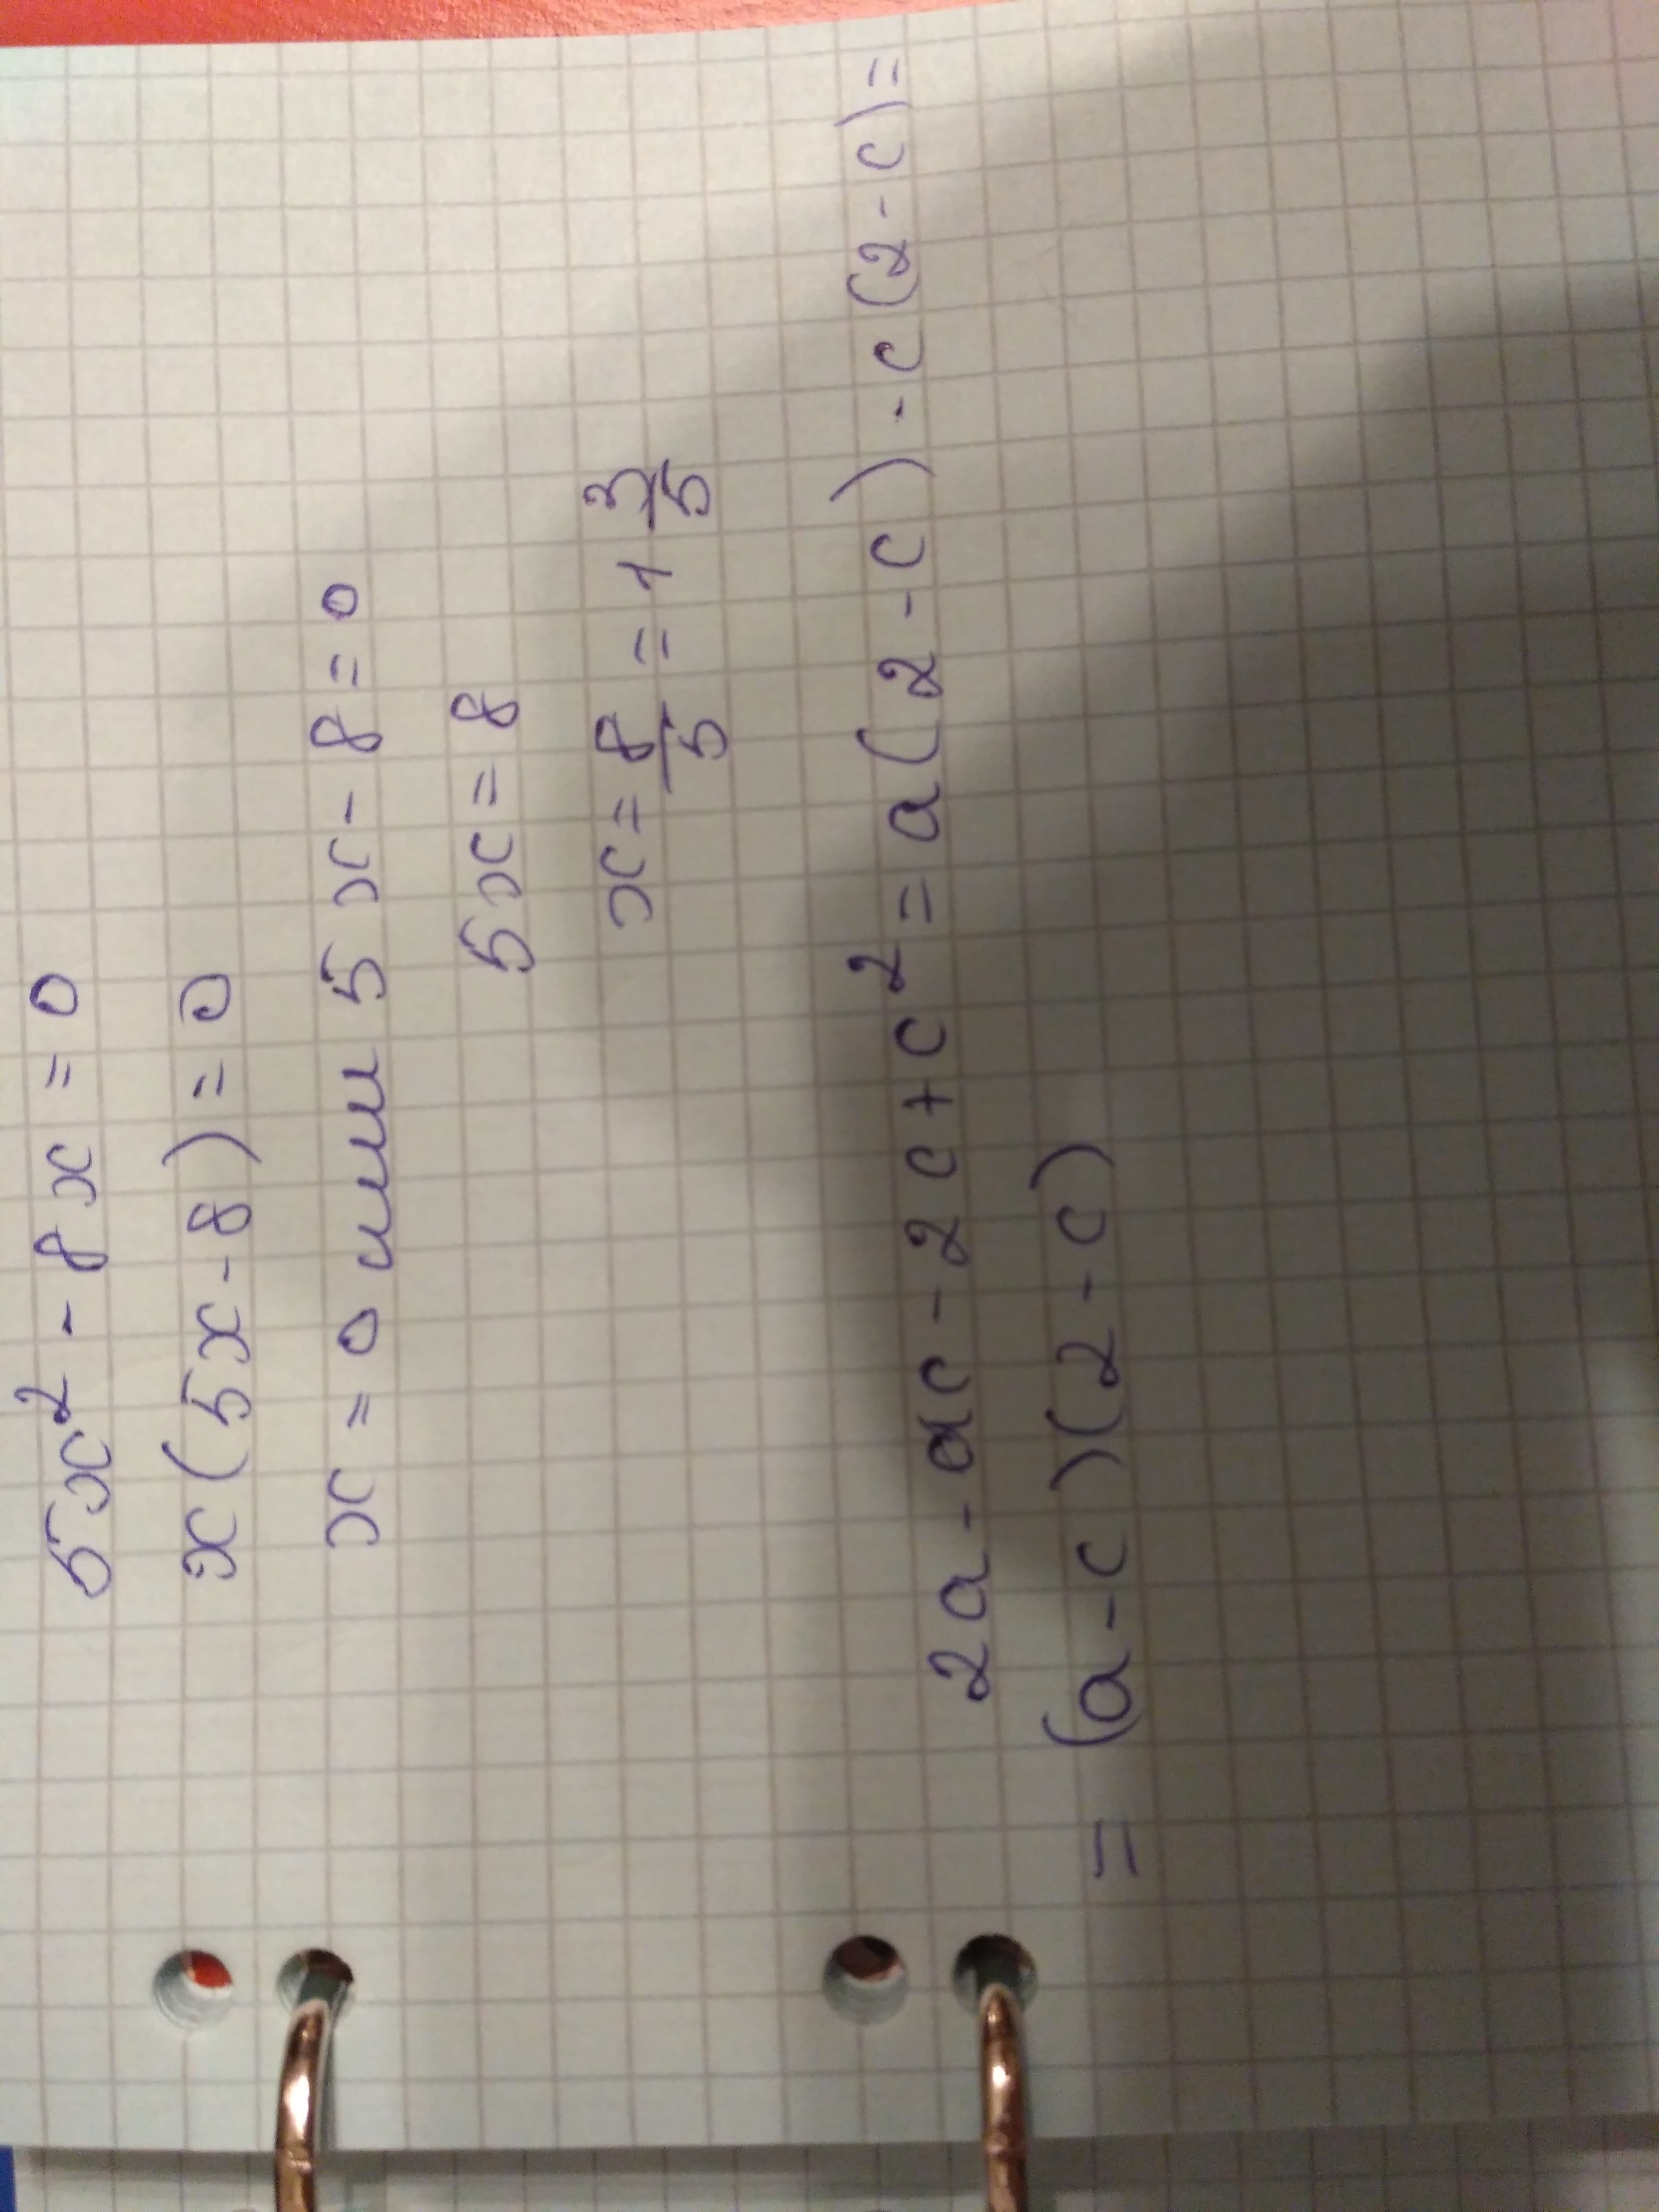 5x² - 8x = 0
x(5x-8)=0
x = 0 или 5x - 8 = 0
5x = 8
x = 8/5 = 1 3/5
2a - ac - 2c + c² = a(2-c) - c(2-c) =
= (a-c)(2-c)